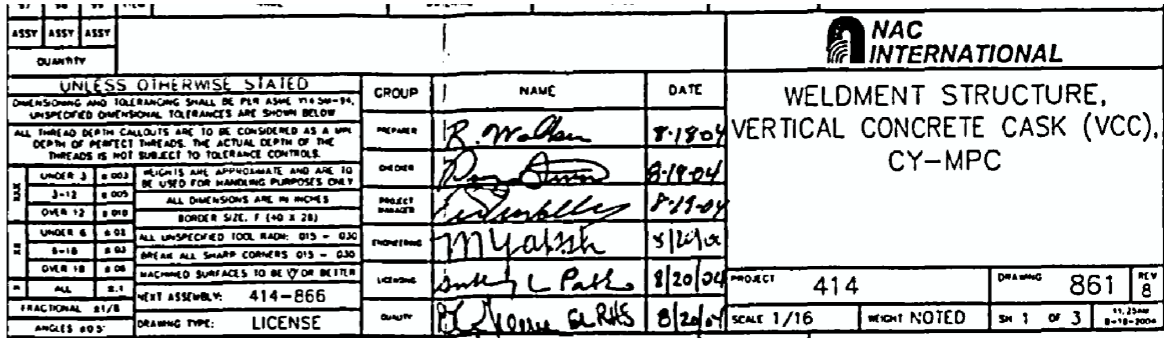 ASSY ASSY ASSY
QUANTITY
NAC
INTERNATIONAL
UNLESS OTHERWISE STATED
DIMENSIONING AND TOLERANCING SHALL BE PER ASME Y14.5M-94,
UNSPECIFIED DIMENSIONAL TOLERANCES ARE SHOWN BELOW
ALL THREAD DEPTH CALLOUTS ARE TO BE CONSIDERED AS A MIN
DEPTH OF PERFECT THREADS. THE ACTUAL DEPTH OF THE
THREADS IS NOT SUBJECT TO TOLERANCE CONTROLS.
UNDER 3 ±.003
3-12 ±.005
OVER 12 ±.010
WEIGHTS ARE APPROXIMATE AND ARE TO
BE USED FOR HANDLING PURPOSES ONLY
ALL DIMENSIONS ARE IN INCHES
BORDER SIZE: F (40 X 28)
.XX UNDER 6 ±.02
6-18 ±.03
OVER 18 ±.06
ALL UNSPECIFIED TOOL RADII: .015 - .030
BREAK ALL SHARP CORNERS .015 - .030
MACHINED SURFACES TO BE OR BETTER
ALL ±.1
NEXT ASSEMBLY: 414-866
FRACTIONAL ±1/8
ANGLES ±0.5°
DRAWING TYPE: LICENSE
GROUP NAME DATE
PREPARER 8-18-04
CHECKER 8-19-04
PROJECT MANAGER 8-19-04
ENGINEERING
LICENSING 8/20/04
QUALITY 8/20/04
WELDMENT STRUCTURE,
VERTICAL CONCRETE CASK (VCC),
CY-MPC
PROJECT 414 DRAWING 861 REV 8
SCALE 1/16 WEIGHT NOTED SH 1 OF 3 11:25AM 8-18-2004